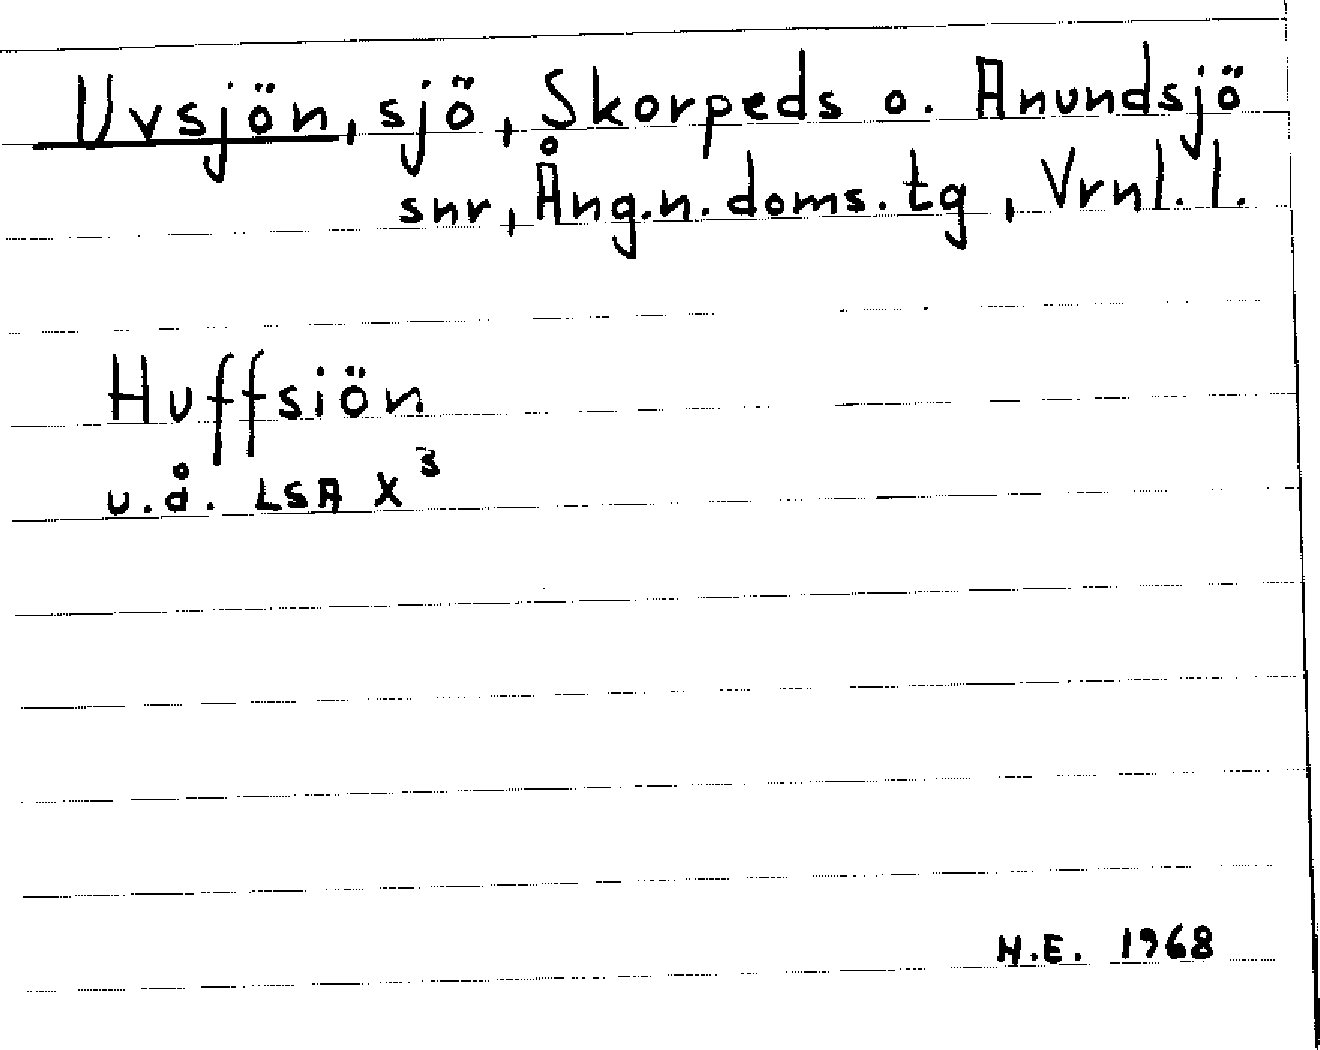 Uvsjön, sjö, Skorpeds o. Anundsjö
snr, Ång.n.doms.tg, Vrnl.l.
Huffsiön
u.å. LSA X³
H.E. 1968